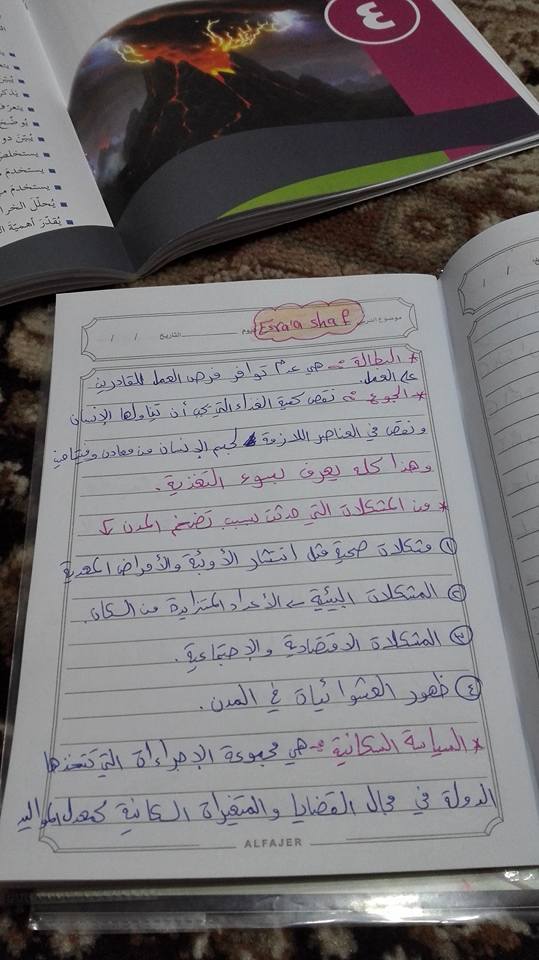 ٤
يُبيّن دو
يستخلص
يستخدم
يستخدم
يُحلّل الخرا
يُقدّر أهميّة ال
موضوع الدرس
Esra'a shaf
اليوم
التاريخ / /
* البطالة :- هي عدم توافر فرص العمل للقادرين
على العمل.
* الجوع :- نقص كمية الغذاء التي يجب أن تناولها الإنسان
ونقص في العناصر اللازمة لجسم الإنسان من معادن وفيتامين
وهذا كله يعرف بسوء التغذية.
* من المشكلات التي حدثت بسبب تضخم المدن
① مشكلات صحية مثل انتشار الأوبئة والأمراض المعدية
② المشكلات البيئية ← الأعداد المتزايدة من السكان.
③ المشكلات الاقتصادية والإجتماعية.
④ ظهور العشوائيات في المدن.
* السياسة السكانية :- هي مجموعة الإجراءات التي تتخذها
الدولة في مجال القضايا والمتغيرات السكانية كمعدل المواليد
ALFAJER